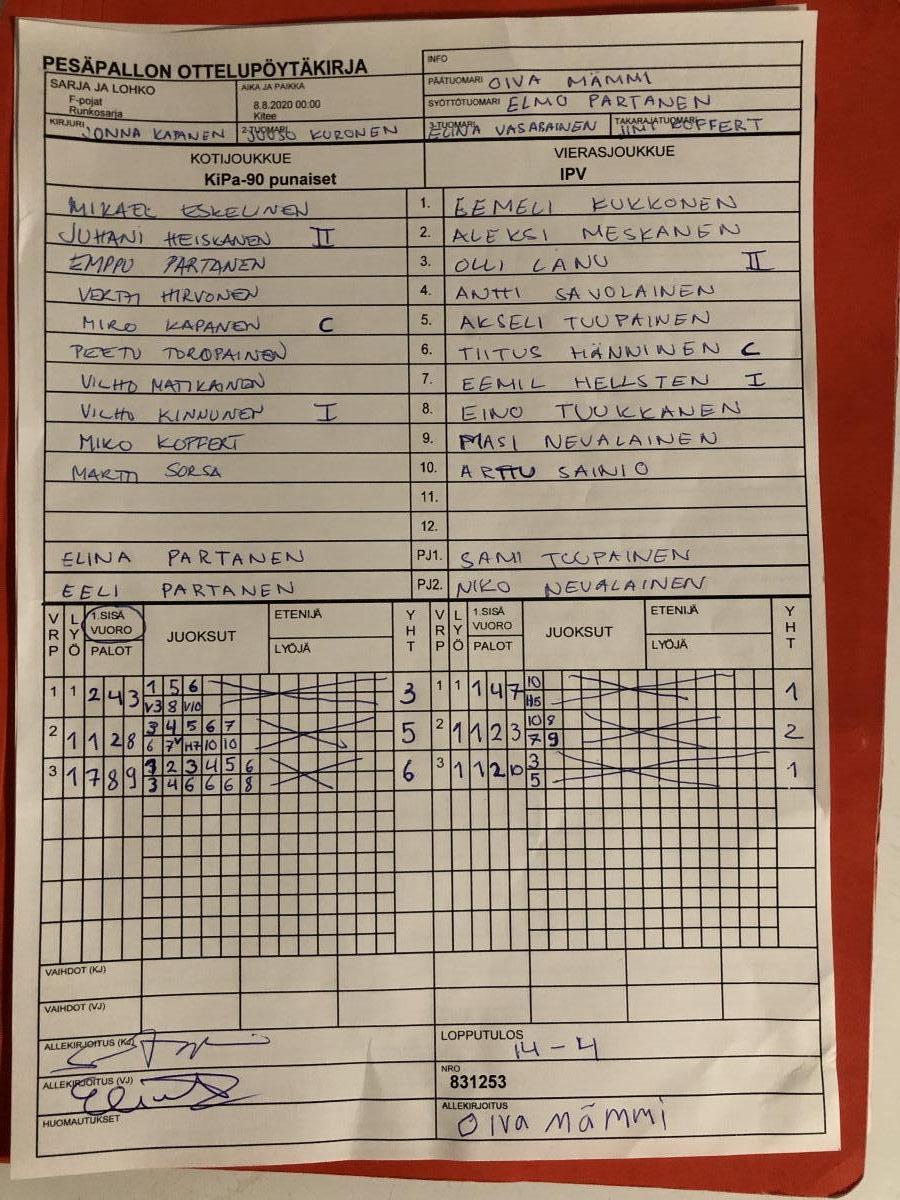 PESÄPALLON OTTELUPÖYTÄKIRJA
INFO
SARJA JA LOHKO
F-pojat
Runkosarja
AIKA JA PAIKKA
8.8.2020 00:00
Kitee
PÄÄTUOMARI OIVA MÄMMI
SYÖTTÖTUOMARI ELMO PARTANEN
KIRJURI JONNA KAPANEN
2-TUOMARI JUUSO KURONEN
3-TUOMARI ELINA VASARAINEN
TAKARAJATUOMARI JIMI KOFFERT
KOTIJOUKKUE
KiPa-90 punaiset
VIERASJOUKKUE
IPV
MIKAEL ESKELINEN 1. EEMELI KUKKONEN
JUHANI HEISKANEN II 2. ALEKSI MESKANEN
EMPPU PARTANEN 3. OLLI LANU II
VERTTI HIRVONEN 4. ANTTI SAVOLAINEN
MIRO KAPANEN C 5. AKSELI TUUPAINEN
PEETU TOROPAINEN 6. TIITUS HÄNNINEN C
VILHO MATIKAINEN 7. EEMIL HELLSTEN I
VILHO KINNUNEN I 8. EINO TUUKKANEN
MIKO KOFFERT 9. MASI NEVALAINEN
MARTTI SORSA 10. ARTTU SAINIO
11.
12.
ELINA PARTANEN PJ1. SAMI TUUPAINEN
EELI PARTANEN PJ2. NIKO NEVALAINEN
VRP LYÖ 1.SISÄ VUORO PALOT JUOKSUT ETENIJÄ LYÖJÄ YHT VRP LYÖ 1.SISÄ VUORO PALOT JUOKSUT ETENIJÄ LYÖJÄ YHT
1 1 2 4 3 1 5 6 3 1 1 1 4 7 10 1
V3 8 V10 H5
2 1 1 2 8 3 4 5 6 7 5 2 1 1 2 3 10 8 2
6 7V H7 10 10 7 9
3 1 7 8 9 1 2 3 4 5 6 6 3 1 1 2 10 3 1
3 4 6 6 6 8 5
VAIHDOT (KJ)
VAIHDOT (VJ)
ALLEKIRJOITUS (KJ)
LOPPUTULOS
14 - 4
ALLEKIRJOITUS (VJ)
NRO
831253
HUOMAUTUKSET
ALLEKIRJOITUS
OIVA MÄMMI